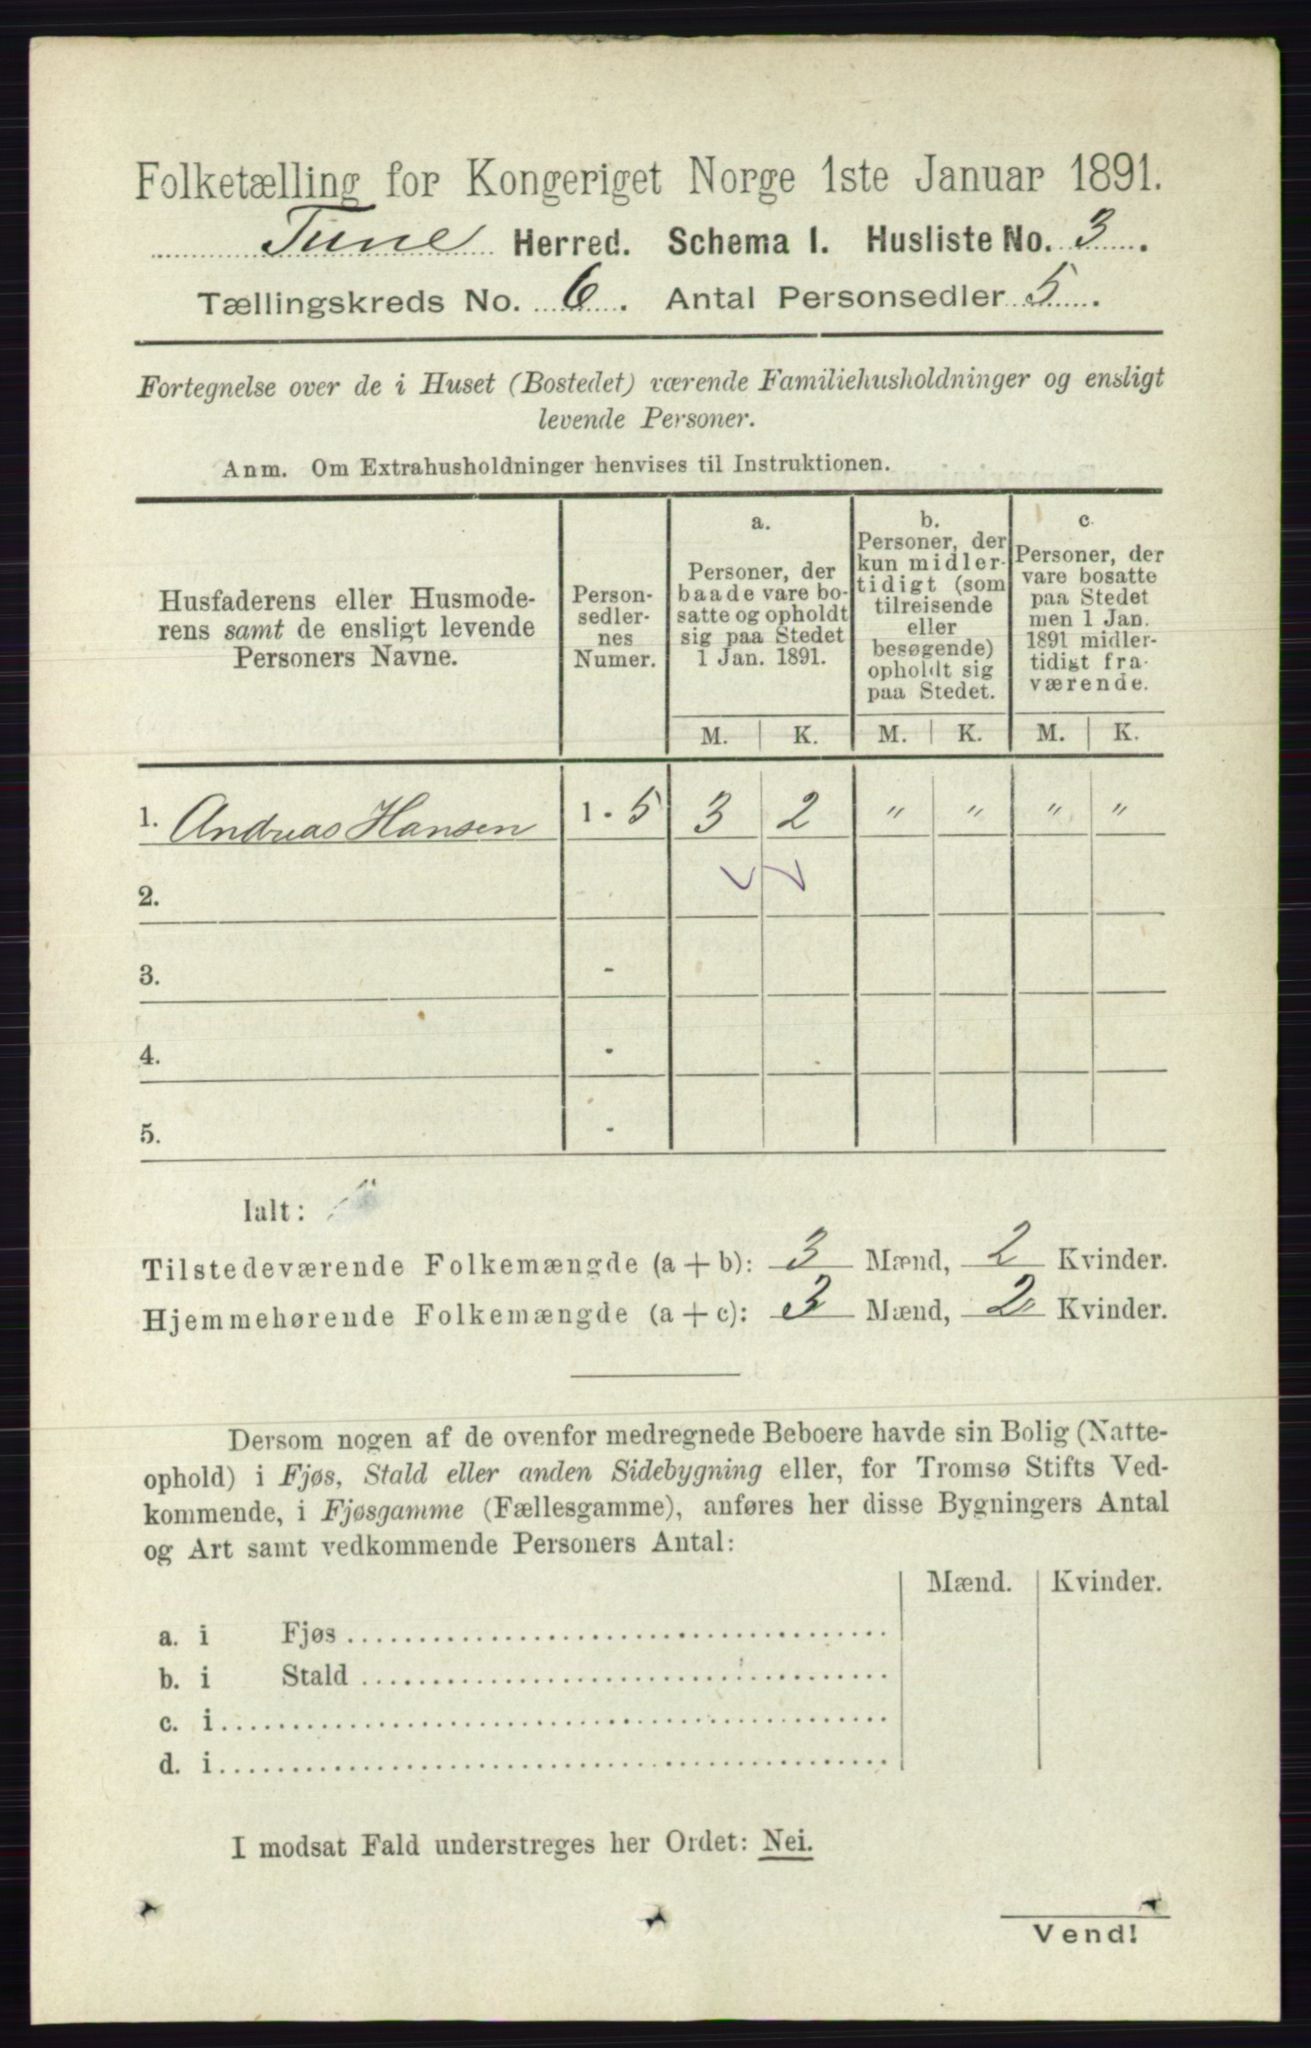 Folketælling for Kongeriget Norge 1ste Januar 1891.
Tune Herred. Schema I. Husliste No. 3.
Tællingskreds No. 6. Antal Personsedler 5.
Fortegnelse over de i Huset (Bostedet) værende Familiehusholdninger og ensligt
levende Personer.
Anm. Om Extrahusholdninger henvises til Instruktionen.
Husfaderens eller Husmode-
rens samt de ensligt levende
Personers Navne.
Person-
sedler-
nes
Numer.
a.
Personer, der
baade vare bo-
satte og opholdt
sig paa Stedet
1 Jan. 1891.
b.
Personer, der
kun midler-
tidigt (som
tilreisende
eller
besøgende)
opholdt sig
paa Stedet.
c.
Personer, der
vare bosatte
paa Stedet
men 1 Jan.
1891 midler-
tidigt fra-
værende.
M. K. M. K. M. K.
1. Andreas Hansen 1 - 5 3 2 " " " "
2.
3. -
4. -
5. -
Ialt:
Tilstedeværende Folkemængde (a + b): 3 Mænd, 2 Kvinder.
Hjemmehørende Folkemængde (a + c): 3 Mænd, 2 Kvinder.
Dersom nogen af de ovenfor medregnede Beboere havde sin Bolig (Natte-
ophold) i Fjøs, Stald eller anden Sidebygning eller, for Tromsø Stifts Ved-
kommende, i Fjøsgamme (Fællesgamme), anføres her disse Bygningers Antal
og Art samt vedkommende Personers Antal:
Mænd. Kvinder.
a. i Fjøs
b. i Stald
c. i
d. i
I modsat Fald understreges her Ordet: Nei.
Vend!